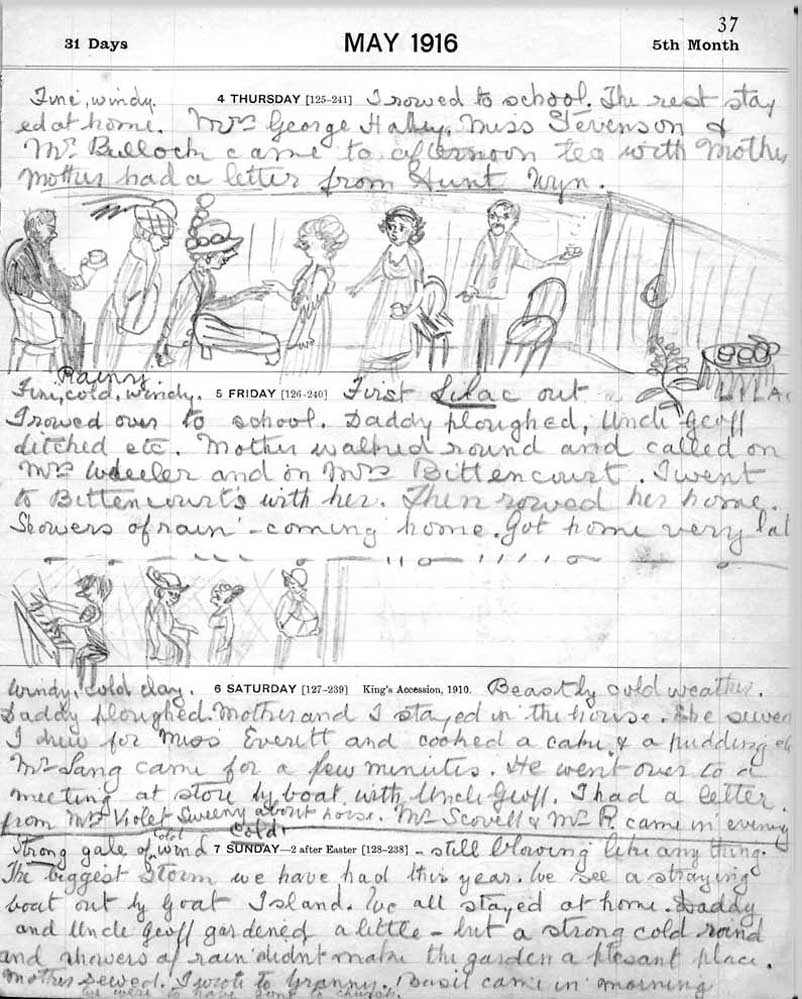 37
31 Days MAY 1916 5th Month
Fine, windy. 4 THURSDAY [125-241] I rowed to school. The rest stay
ed at home. Mrs George Halley, Miss Stevenson &
Mr Bulloch came to afternoon tea with Mother
Mother had a letter from Aunt Wyn.
Rainy.
Fine, cold, windy. 5 FRIDAY [126-240] First Lilac out LILAC
I rowed over to school. Daddy ploughed, Uncle Geoff
ditched etc. Mother walked round and called on
Mrs Wheeler and on Mrs Bittencourt. I went
to Bittencourts with her. Then rowed her home.
Showers of rain - coming home. Got home very lat
Windy, cold day. 6 SATURDAY [127-239] King's Accession, 1910. Beastly cold weather.
Daddy ploughed. Mother and I stayed in the house. She sewed
I drew for Miss Everett and cooked a cake & a pudding etc
Mr Lang came for a few minutes. He went over to a
meeting at store by boat with Uncle Geoff. I had a letter
from Mrs Violet Sweeny about horse. Mr Scovell & Mr R. came in evening
cold Cold.
Strong gale of wind 7 SUNDAY—2 after Easter [128-238] - still blowing like any thing.
The biggest Storm we have had this year. We see a straying
boat out by Goat Island. We all stayed at home. Daddy
and Uncle Geoff gardened a little - but a strong cold wind
and showers of rain didnt make the garden a plesant place.
Mother sewed. I wrote to Granny. Basil came in morning
we were to have gone to church.